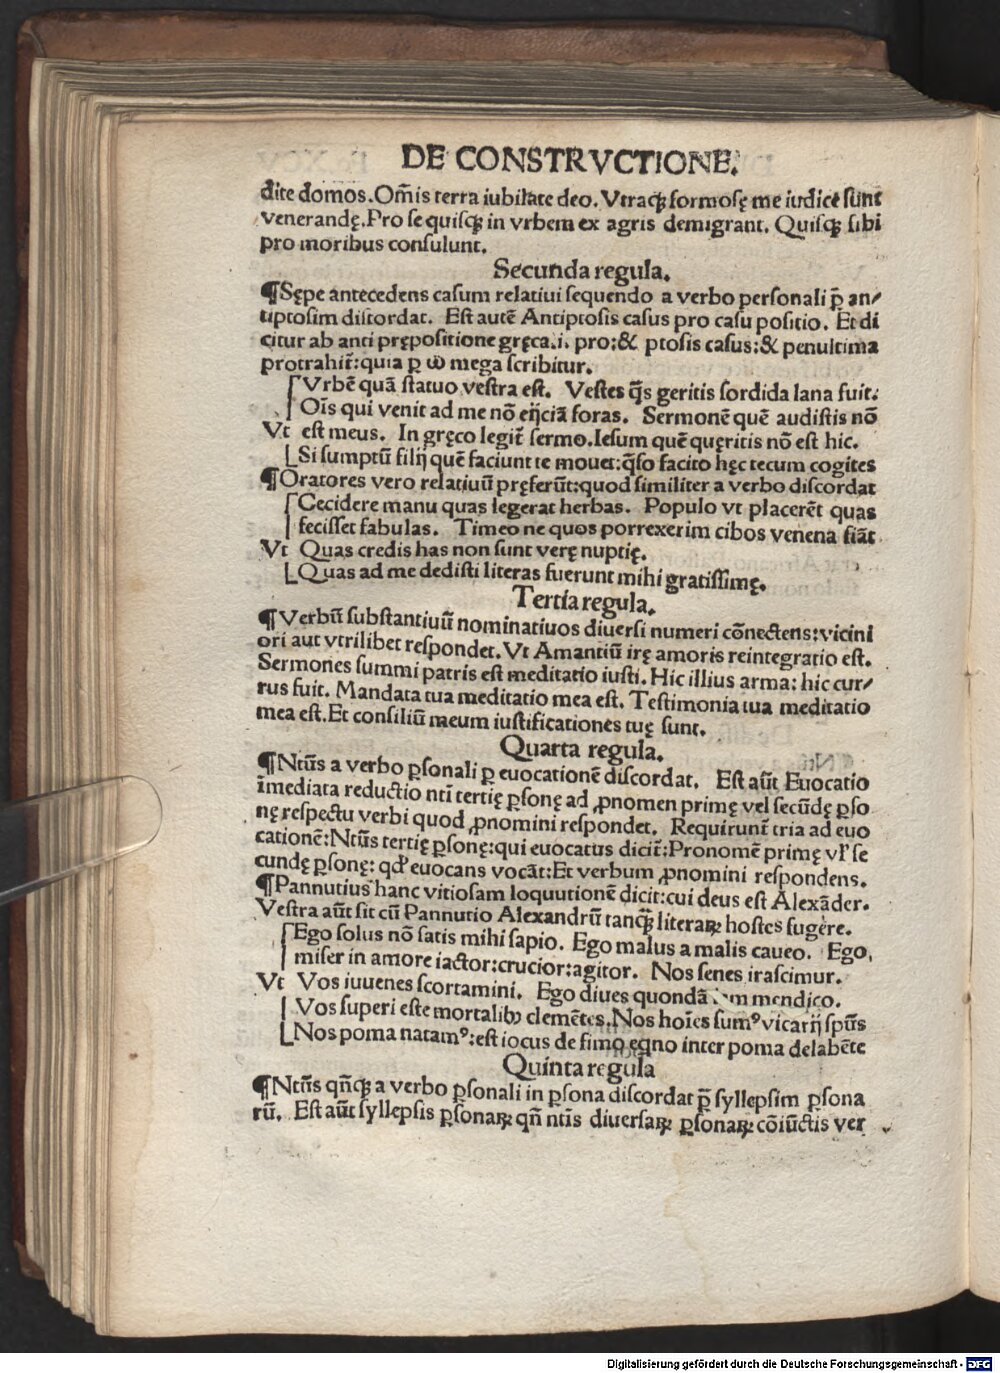 DE CONSTRVCTIONE.
dite domos. Om̄is terra iubilate deo. Vtraqꝫ formosę me iudice sunt
venerandę. Pro se quisqꝫ in vrbem ex agris demigrant. Quisqꝫ sibi
pro moribus consulunt.
Secunda regula.
¶Sępe antecedens casum relatiui sequendo a verbo personali ꝑ an⸗
tiptosim discordat. Est autē Antiptosis casus pro casu positio. Et di
citur ab anti prępositione gręca.i. pro:& ptosis casus:& penultima
protrahit̄:quia ꝑ ω mega scribitur.
Vrbē quā statuo vestra est. Vestes q̄s geritis sordida lana fuit.
Oīs qui venit ad me nō eijciā foras. Sermonē quē audistis nō
Vt est meus. In gręco legit̄ sermo. Iesum quē quęritis nō est hic.
Si sumptū filij quē faciunt te mouet:q̄so facito hęc tecum cogites
¶Oratores vero relatiuū pręferūt:quod similiter a verbo discordat
Cecidere manu quas legerat herbas. Populo vt placerēt quas
fecisset fabulas. Timeo ne quos porrexerim cibos venena fiāt
Vt Quas credis has non sunt verę nuptię.
Quas ad me dedisti literas fuerunt mihi gratissimę.
Tertia regula.
¶Verbū substantiuū nominatiuos diuersi numeri cōnectens:vicini
ori aut vtrilibet respondet. Vt Amantiū irę amoris reintegratio est.
Sermones summi patris est meditatio iusti. Hic illius arma: hic cur⸗
rus fuit. Mandata tua meditatio mea est. Testimonia tua meditatio
mea est. Et consiliū meum iustificationes tuę sunt.
Quarta regula.
¶Nt̄us a verbo ꝑsonali ꝑ euocationē discordat. Est aūt Euocatio
īmediata reductio nt̄i tertię ꝑsonę ad ꝓnomen primę vel secūdę ꝑso
nę respectu verbi quod ꝓnomini respondet. Requirunt̄ tria ad euo
cationē:Nt̄us tertię ꝑsonę:qui euocatus dicit̄:Pronomē primę vl' se
cundę ꝑsonę: qd' euocans vocāt:Et verbum ꝓnomini respondens.
¶Pannutius hanc vitiosam loquutionē dicit:cui deus est Alexāder.
Vestra aūt sit cū Pannutio Alexandrū tanqꝫ̄ literaꝝ hostes fugere.
Ego solus nō satis mihi sapio. Ego malus a malis caueo. Ego
miser in amore iactor:crucior:agitor. Nos senes irascimur.
Vt Vos iuuenes scortamini. Ego diues quondā mendico.
Vos superi este mortalibꝫ clemētes. Nos hoīes sumꝰ vicarij sp̄us
Nos poma natamꝰ:est iocus de fimo eqno inter poma delabēte
Quinta regula
¶Nt̄us qn̄qꝫ a verbo ꝑsonali in ꝑsona discordat ꝑ syllepsim ꝑsona
rū. Est aūt syllepsis ꝑsonaꝝ qn̄ nt̄is diuersaꝝ ꝑsonaꝝ cōiūctis ver
Digitalisierung gefördert durch die Deutsche Forschungsgemeinschaft - DFG